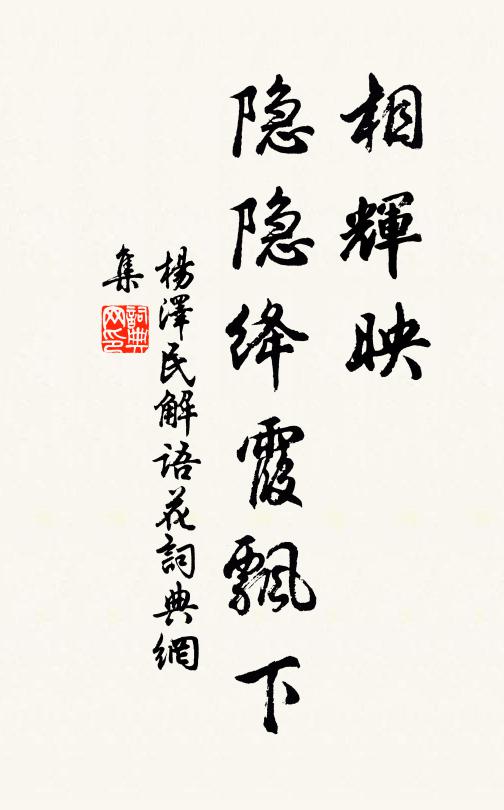 相輝映
隐隐绛霞飄下
楊澤民解语花詞典網
集
詞典网印